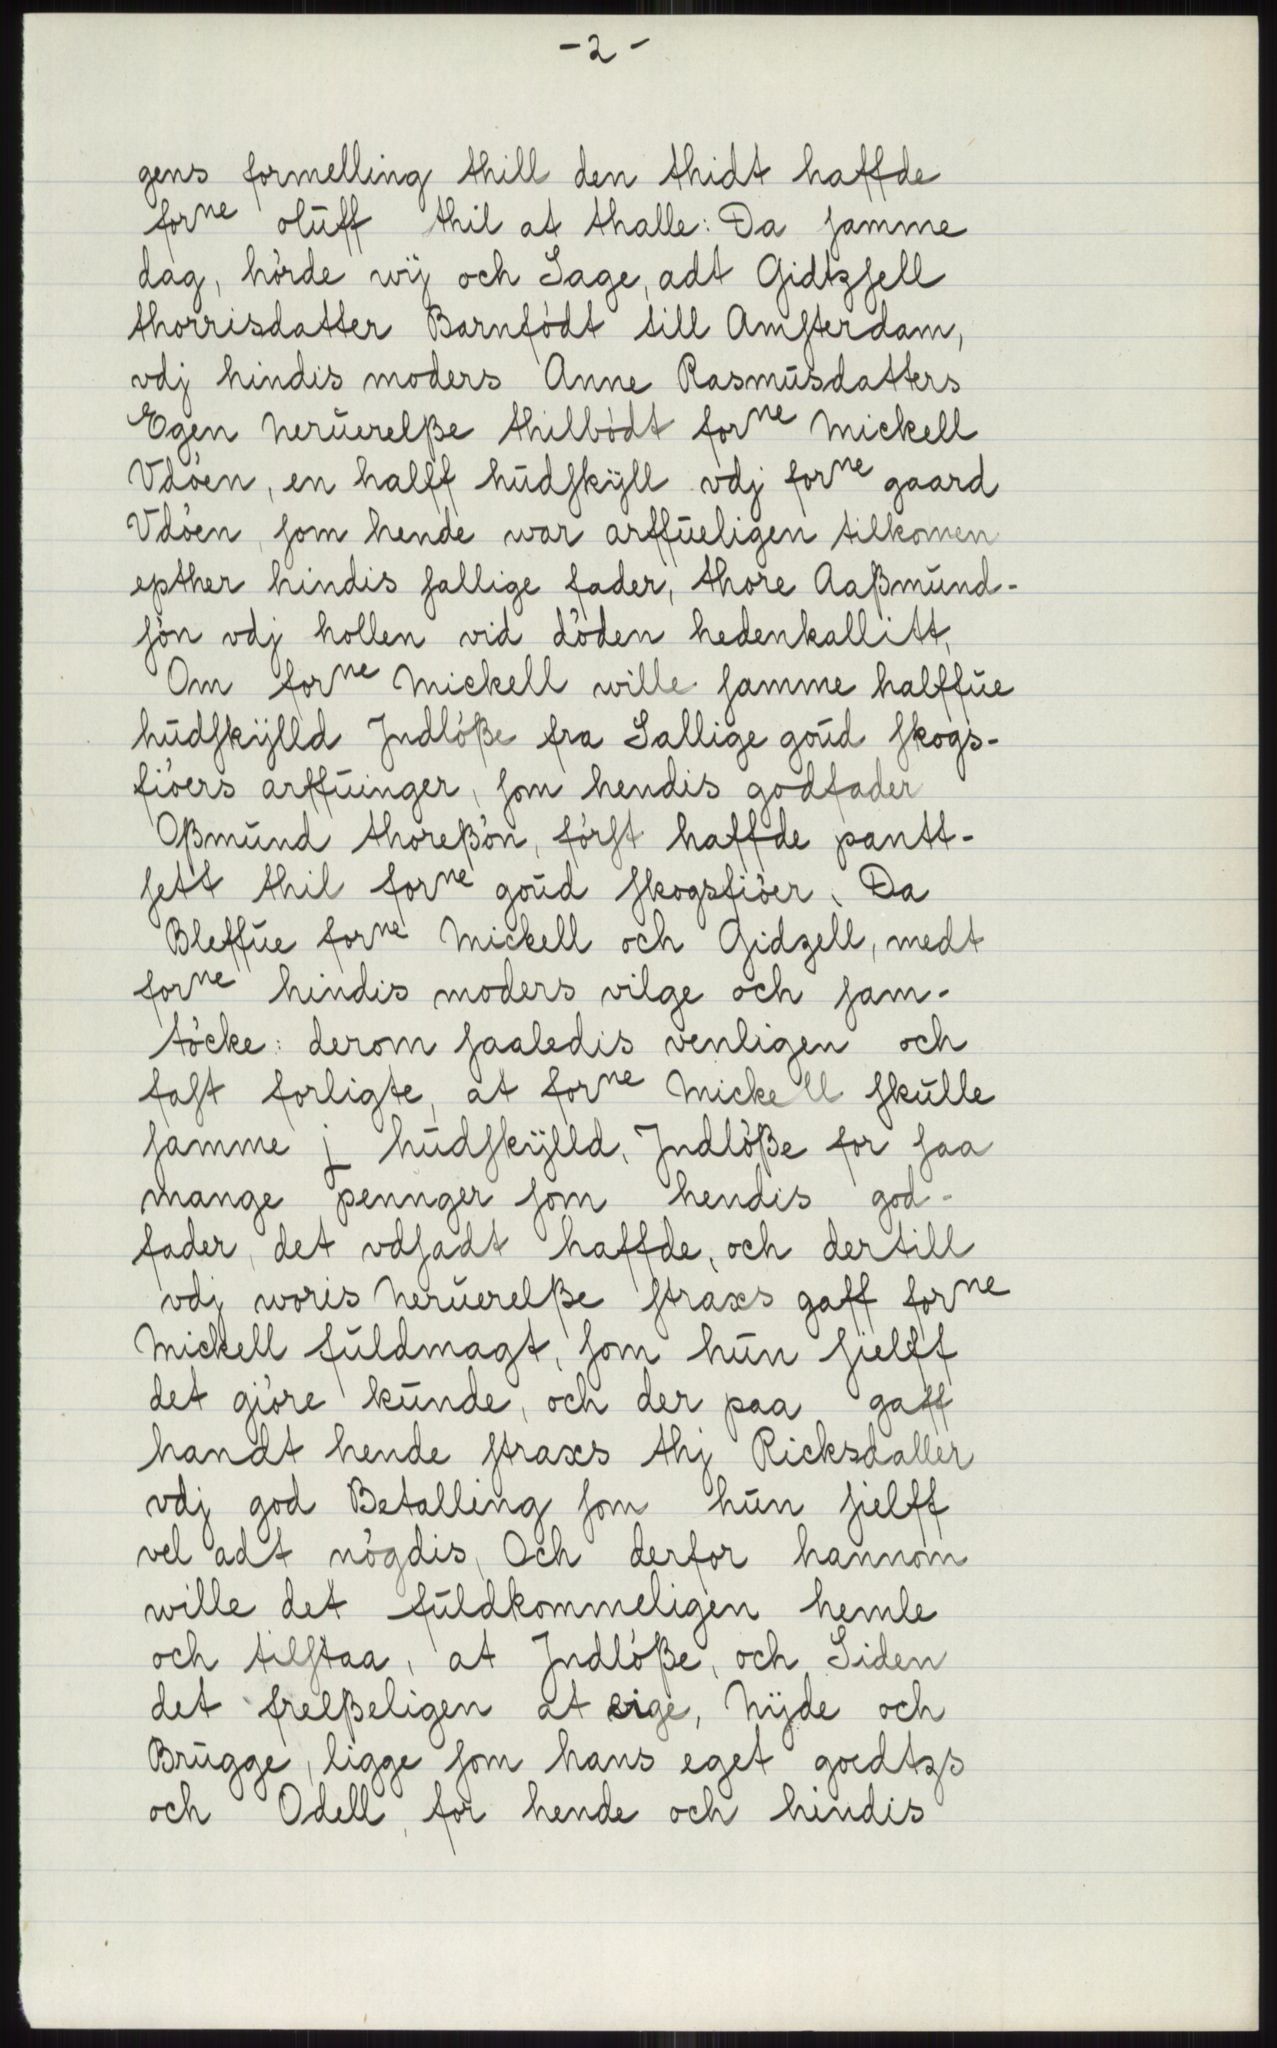 - 2 -
gens formelling thill den thidt haffde
forne olūff thil at thalle: Da samme
dag, hörde wij och Sage, adt Gidtzsell
thorrisdatter Barnfödt till Amsterdam,
vdj hindis moders Anne Rasmūsdatters
Egen nerūerelße thilbödt forne Mickell
Vdöen, en halff hūdskÿll vdj forne gaard
Vdöen, som hende war arffūeligen tilkomen
epther hindis sallige fader, thore Aaßmūnd-
sön vdj hollen vid döden hedenkallitt,
Om forne Mickell wille samme halffūe
hūdskÿlld Jndlöße fra Sallige goūd skogs-
fiöers arffūinger, som hendis godfader
Oßmūnd thoreßön, först haffde pantt-
sett thil forne goūd skogsfiöer. Da
Bleffūe forne Mickell och Gidzell, medt
forne hindis moders vilge och sam-
töcke: derom saaledis venligen och
fast forligte, at forne Mickell skūlle
samme j hūdskÿlld, Jndlöße for saa
mange pennger som hendis god-
fader, det vdsadt haffde, och dertill
vdj woris nerūerelße straxs gaff forne
Mickell fūldmagt, som hūn sielff
det giöre kūnde, och der paa gaff
handt hende straxs thj Ricksdaller
vdj god Betalling som hūn sielff
vel adt nögdis, Och derfor hannom
wille det fūldkommeligen hemle
och tilstaa, at Jndlöße, och Siden
det frelßeligen at eige, Nÿde och
Brūgge, ligge som hans eget goedtzs
och Odell, for hende och hindis